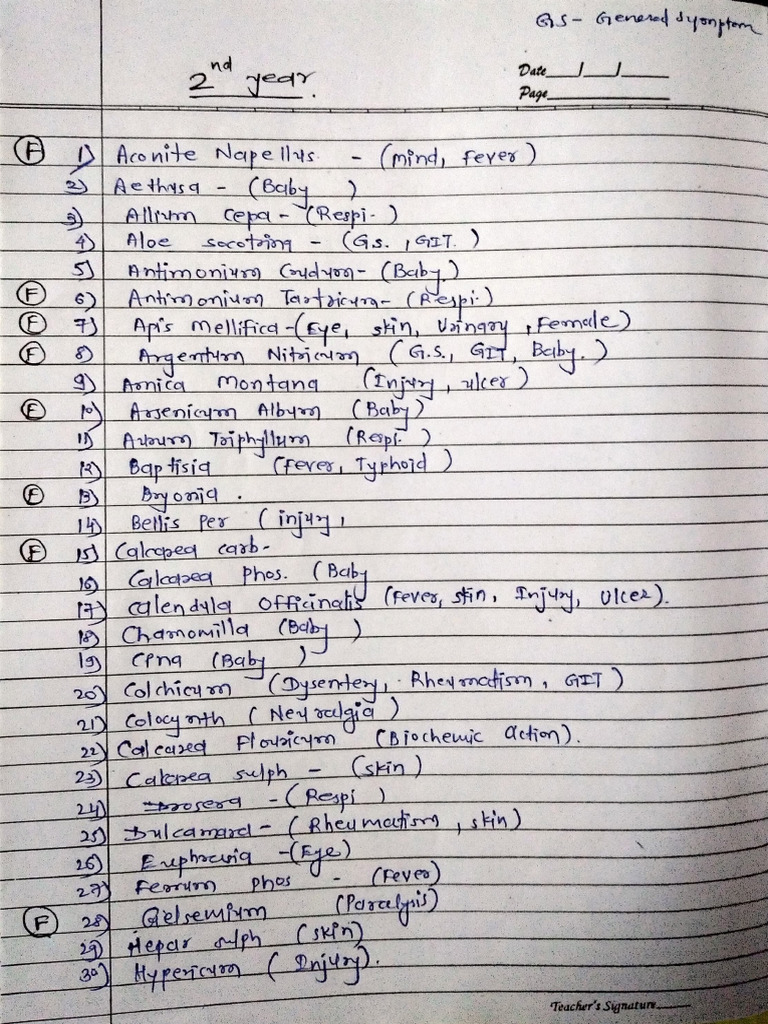 GS - General Symptom
2nd year.
Date___/___/___
Page___
(F) 1) Aconite Napellus. - (Mind, Fever)
2) Aethusa - (Baby )
3) Allium cepa - (Respi. )
4) Aloe socotrina - (G.s. , GIT. )
5) Antimonium Crudum - (Baby)
(F) 6) Antimonium Tartricum - (Respi.)
(F) 7) Apis Mellifica - (Eye, skin, Urinary , Female)
(F) 8) Argentum Nitricum (G.S., GIT, Baby. )
9) Arnica Montana (Injury, ulcer)
(F) 10) Arsenicum Album (Baby)
11) Aurum Triphyllum (Respi. )
12) Baptisia (Fever, Typhoid )
(F) 13) Bryonia .
14) Bellis Per ( injury,
(F) 15) Calcarea carb-
16) Calcarea Phos. (Baby
17) Calendula Officinalis (Fever, skin, Injury, Ulcer).
18) Chamomilla (Baby )
19) Cina (Baby )
20) Colchicum (Dysentery, Rheumatism, GIT )
21) Colocynth ( Neuralgia )
22) Calcarea Flouricum (Biochemic action).
23) Calcarea sulph - (skin)
24) Drosera - ( Respi )
25) Dulcamara - ( Rheumatism , skin)
26) Euphrasia - (Eye)
27) Ferrum Phos - (Fever)
(F) 28) Gelsemium (Paralysis)
29) Hepar sulph (skin)
30) Hypericum ( Injury).
Teacher's Signature